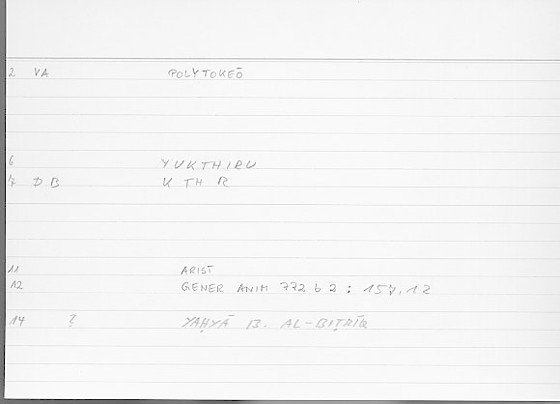 2 VA POLYTOKEŌ
6 YUKTHIRU
7 D B K TH R
11 ARIST
12 GENER ANIM 772 b 2 : 157.12
14 ? YAḤYĀ B. AL-BIṬRĪQ